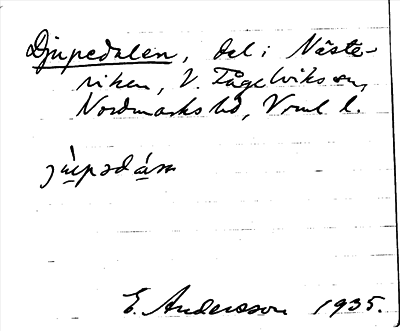 Djupedalen, del i Näste-
viken, V. Fågelviks sn,
Nordmarks hd, Vrml l.
E. Andersson 1935.